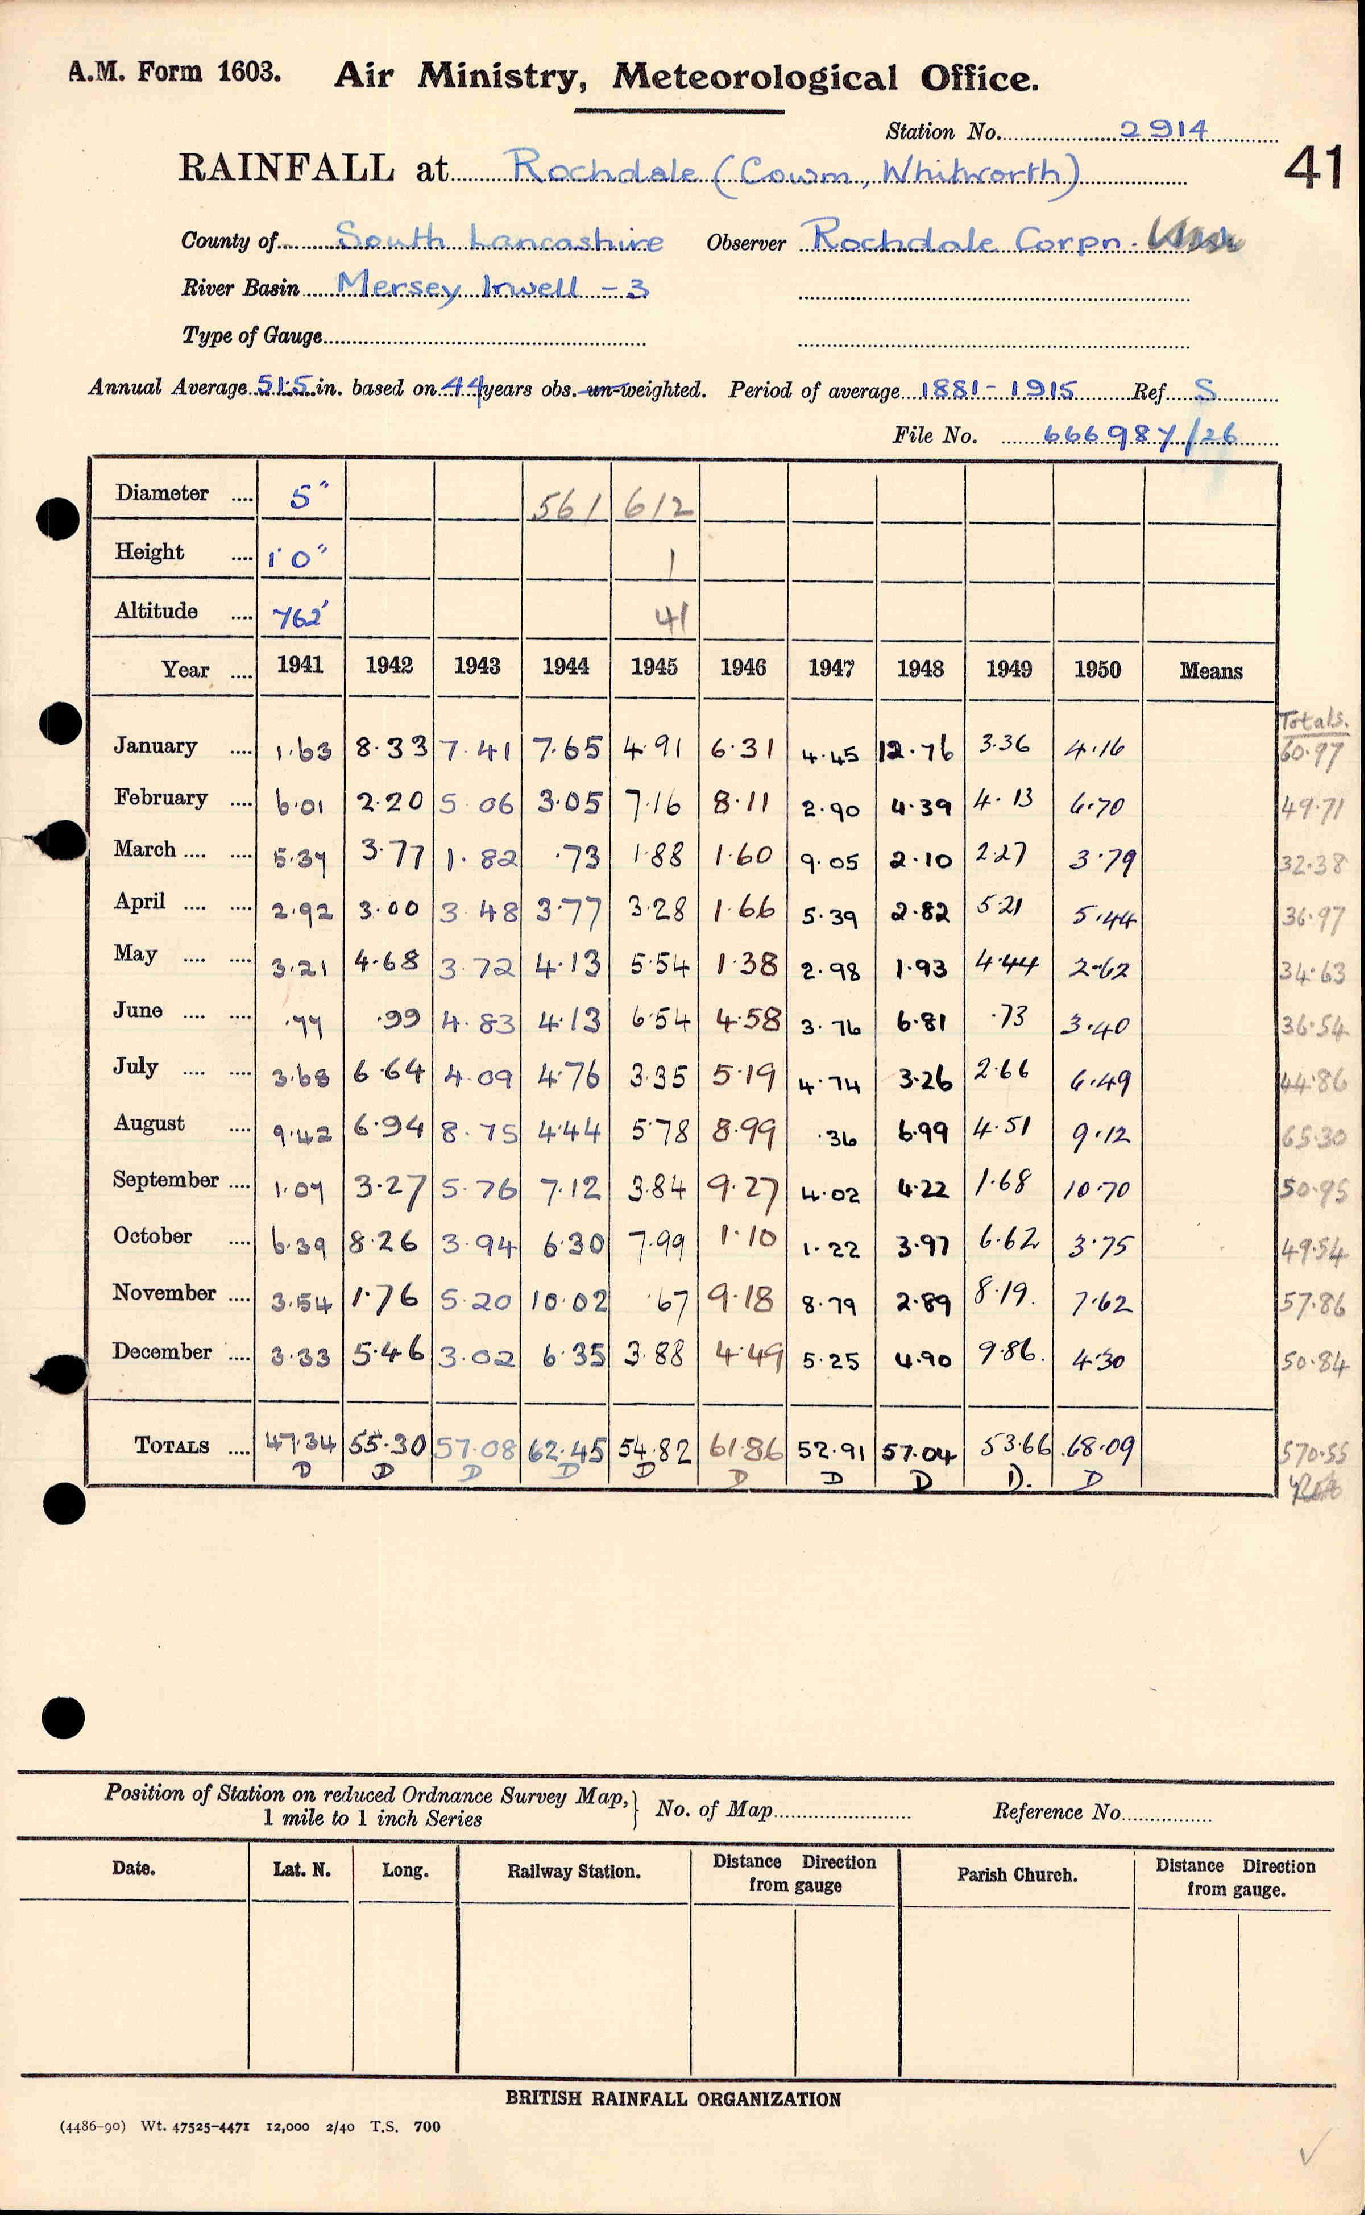 A.M. Form 1603. Air Ministry, Meteorological Office.
Station No. 2914
RAINFALL at Rochdale (Cowm, Whitworth) 41
County of South Lancashire Observer Rochdale Corpn.
River Basin Mersey Irwell - 3
Type of Gauge
Annual Average 51.5 in. based on 44 years obs. un-weighted. Period of average 1881-1915 Ref S
File No. 666987/26
Diameter .... 5" 561 612
Height .... 1'0" 1
Altitude .... 762' 41
Year .... 1941 1942 1943 1944 1945 1946 1947 1948 1949 1950 Means
Totals.
January .... 1.63 8.33 7.41 7.65 4.91 6.31 4.45 12.76 3.36 4.16 60.97
February .... 6.01 2.20 5.06 3.05 7.16 8.11 2.90 4.39 4.13 6.70 49.71
March .... .... 5.37 3.77 1.82 .73 1.88 1.60 9.05 2.10 2.27 3.79 32.38
April .... .... 2.92 3.00 3.48 3.77 3.28 1.66 5.39 2.82 5.21 5.44 36.97
May .... .... 3.21 4.68 3.72 4.13 5.54 1.38 2.98 1.93 4.44 2.62 34.63
June .... .... .77 .99 4.83 4.13 6.54 4.58 3.76 6.81 .73 3.40 36.54
July .... .... 3.68 6.64 4.09 4.76 3.35 5.19 4.74 3.26 2.66 6.49 44.86
August .... 9.42 6.94 8.75 4.44 5.78 8.99 .36 6.99 4.51 9.12 65.30
September .... 1.07 3.27 5.76 7.12 3.84 9.27 4.02 4.22 1.68 10.70 50.95
October .... 6.39 8.26 3.94 6.30 7.99 1.10 1.22 3.97 6.62 3.75 49.54
November .... 3.54 1.76 5.20 10.02 .67 9.18 8.79 2.89 8.19. 7.62 57.86
December .... 3.33 5.46 3.02 6.35 3.88 4.49 5.25 4.90 9.86. 4.30 50.84
TOTALS .... 47.34 55.30 57.08 62.45 54.82 61.86 52.91 57.04 53.66 68.09 570.55
D D D D D D D D D. D
Position of Station on reduced Ordnance Survey Map, 1 mile to 1 inch Series } No. of Map Reference No.
Date. Lat. N. Long. Railway Station. Distance Direction from gauge Parish Church. Distance Direction from gauge.
BRITISH RAINFALL ORGANIZATION
(4486-90) Wt. 47525-4471 12,000 2/40 T.S. 700